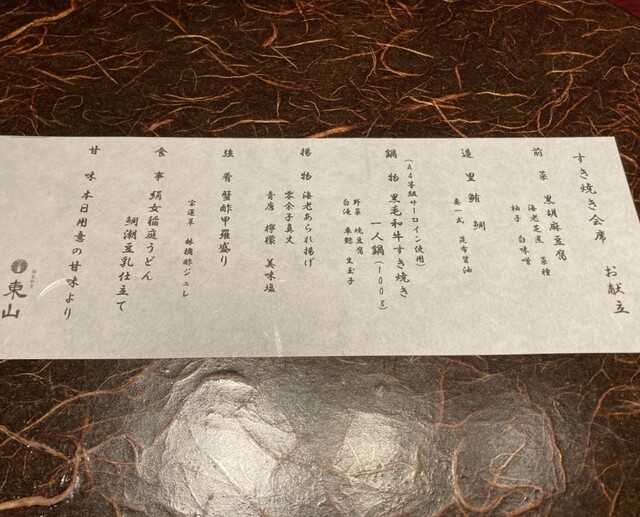 すき焼き会席 お献立
前菜 黒胡麻豆腐
海老芝煮 菜種
柚子 白味噌
造里 鮪 鯛
妻一式 昆布醤油
鍋物 黒毛和牛すき焼き
(A4等級サーロイン使用)
一人鍋(100g)
野菜 焼豆腐
白滝 車麩 生玉子
揚物 海老あられ揚げ
零余子真丈
青唐 檸檬 美味塩
強肴 蟹酢甲羅盛り
宝蓮草 林檎酢ジュレ
食事 絹女稲庭うどん
鯛潮豆乳仕立て
甘味 本日用意の甘味より
東山